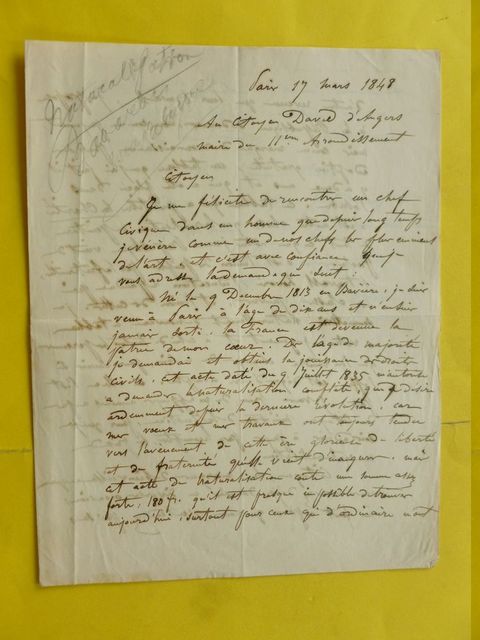 Naturalisation
Paris 17 mars 1848
Au Citoyen David d'Angers
maire du 11em Arrondissement
Citoyen
Je me félicite de rencontrer un chef
civique dans un homme que depuis long temps
je vénère comme un de nos chefs les plus éminents
de l'art, et c'est avec confiance que je
vous adresse la demande qui suit :
Né le 9 Décembre 1813 en Bavière, je suis
venu à Paris à l'âge de dix ans et n'en suis
jamais sorti. la France est devenue la
patrie de mon cœur. De l'age de majorité
je demandai et obtins la jouissance des droits
civils, cet acte daté du 9 Juillet 1835 m'autorise
a demander la naturalisation complète, que je désire
ardemment depuis la dernière révolution, car
mes vœux et mes travaux ont toujours tendu
vers l'avènement de cette ère glorieuse de liberté
et de fraternité qu'elle vient d'inaugurer, mais
cet acte de naturalisation coûte une somme assez
forte, 180 fr. qu'il est presque impossible de trouver
aujourd'hui, surtout pour ceux qui d'ordinaire n'ont